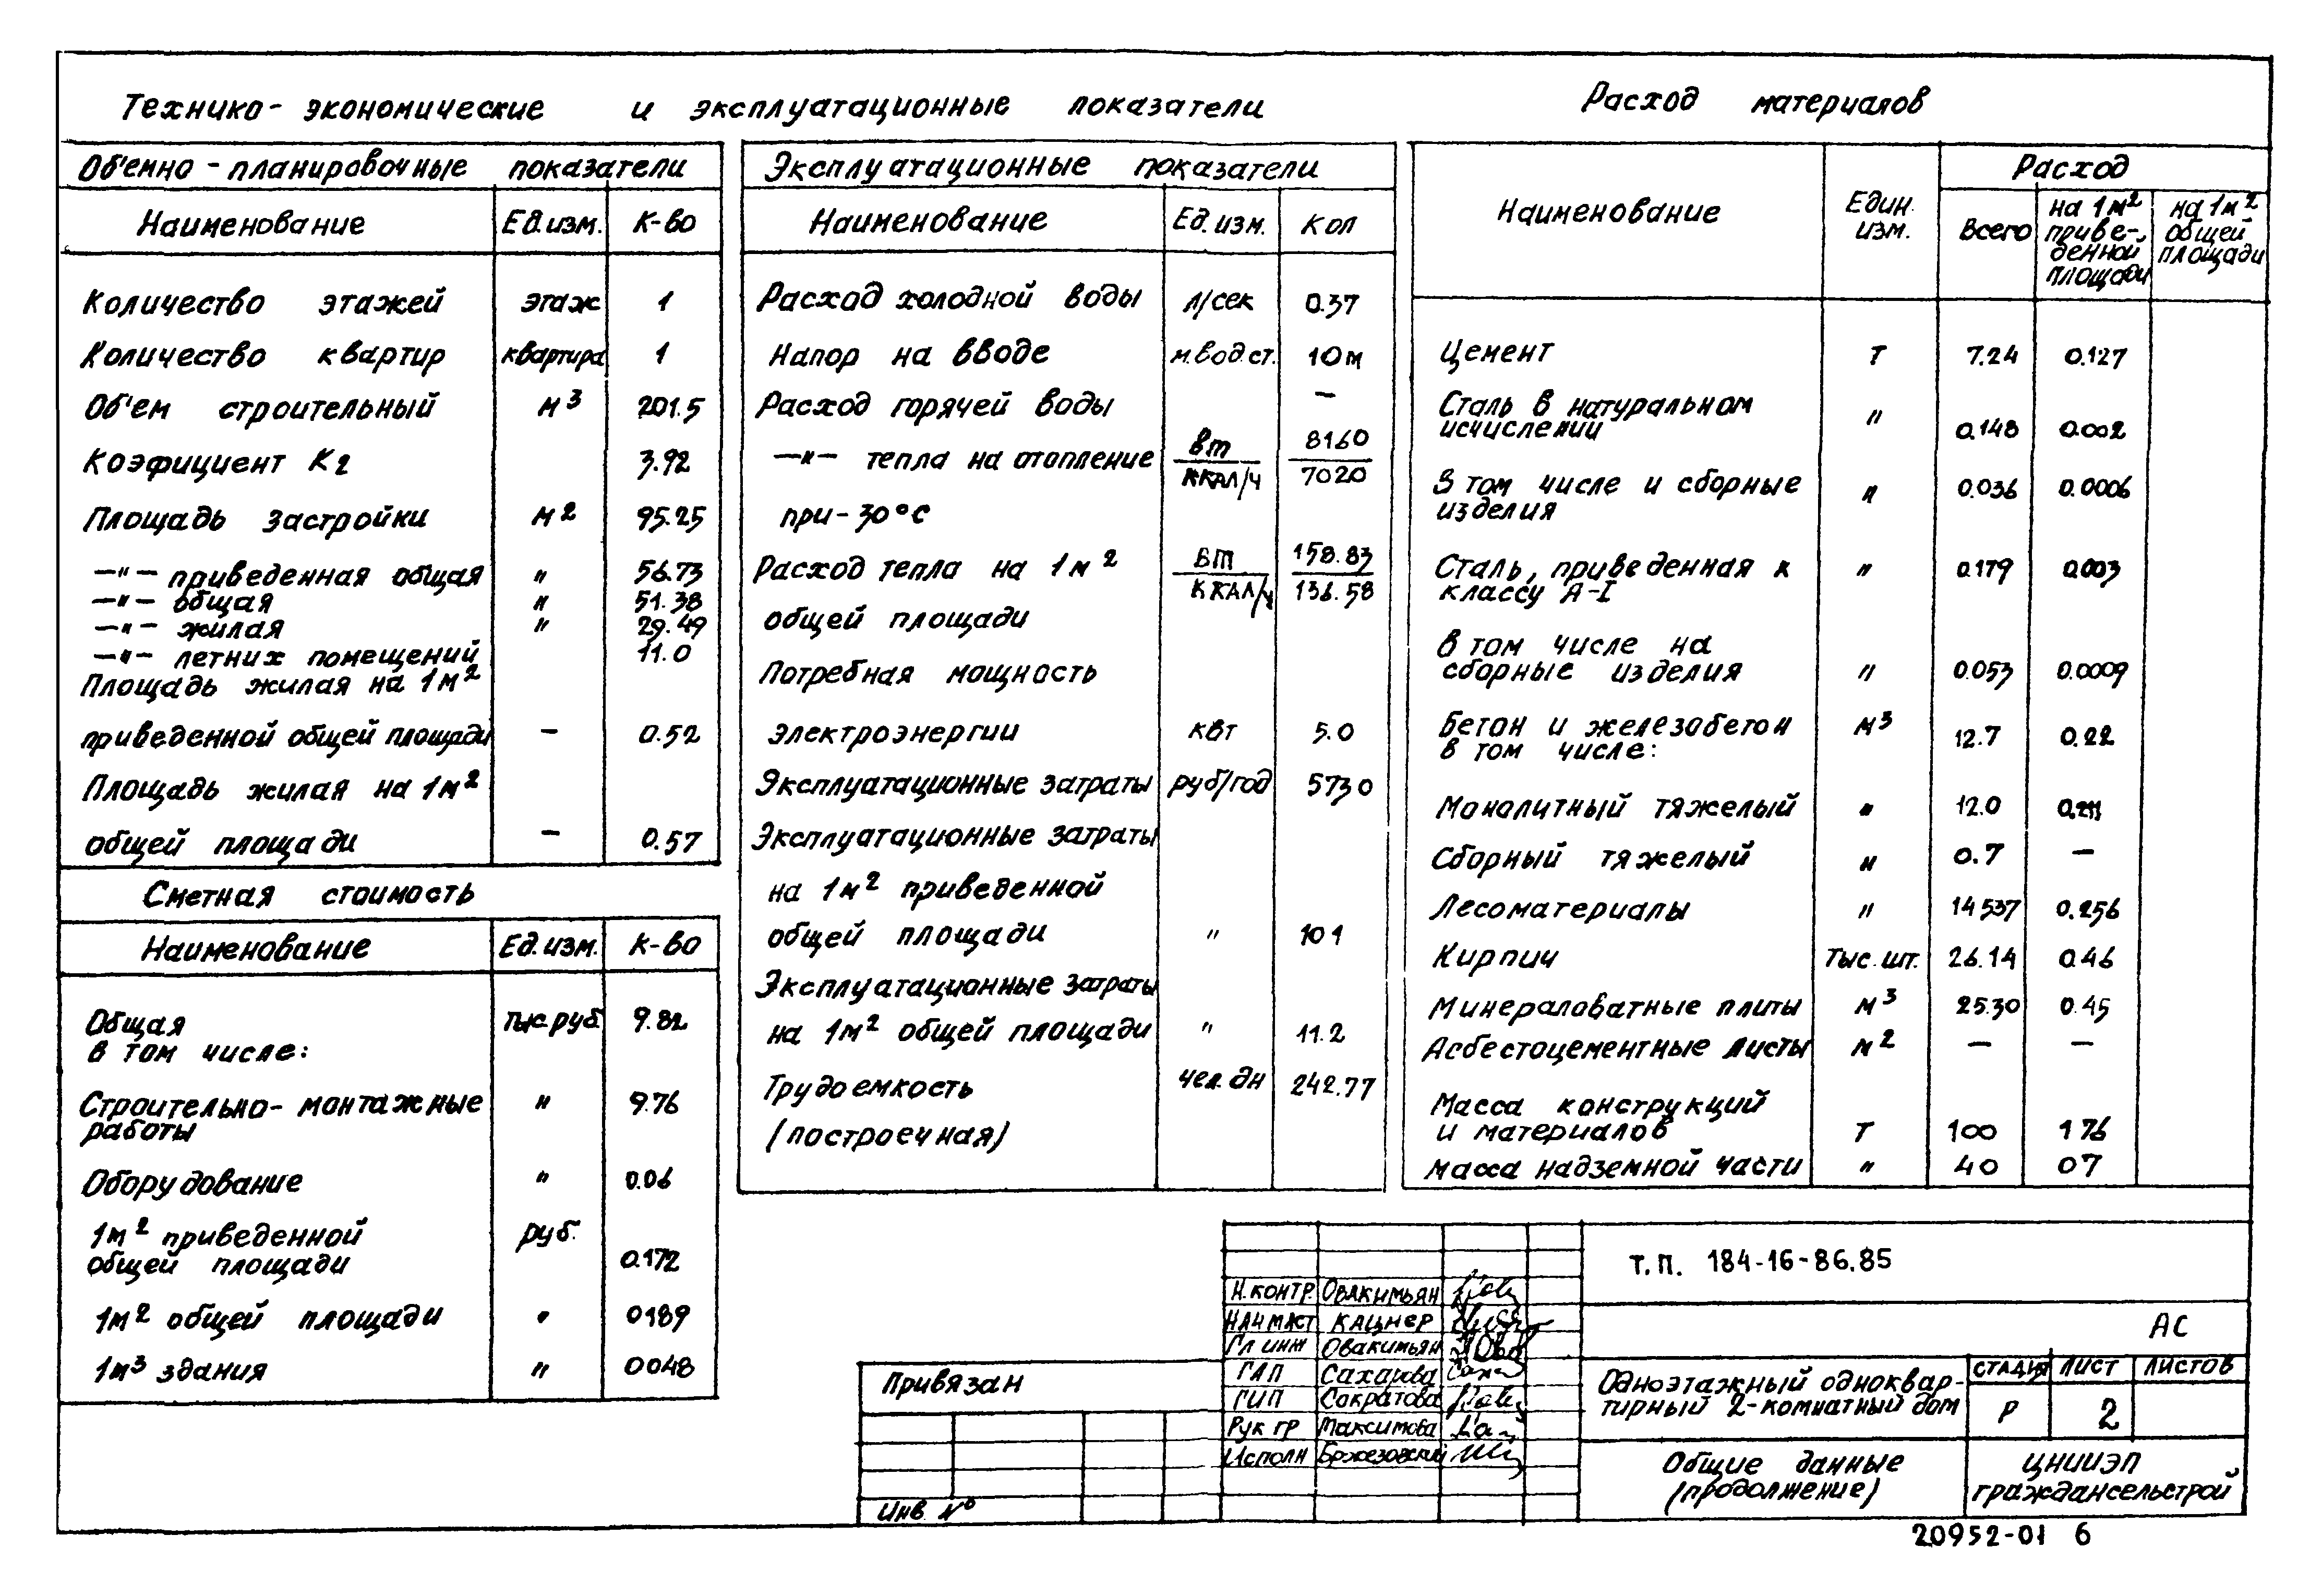 Технико-экономические и эксплуатационные показатели
Расход материалов
Об'емно-планировочные показатели
Наименование Ед.изм. К-во
Количество этажей этаж 1
Количество квартир квартира 1
Об'ем строительный м³ 201.5
Коэфициент К2 3.92
Площадь застройки м² 95.25
—"— приведенная общая " 56.73
—"— общая " 51.38
—"— жилая " 29.49
—"— летних помещений 11.0
Площадь жилая на 1м²
приведенной общей площади — 0.52
Площадь жилая на 1м²
общей площади — 0.57
Сметная стоимость
Наименование Ед.изм. К-во
Общая тыс.руб 9.82
в том числе:
Строительно-монтажные " 9.76
работы
Оборудование " 0.06
1м² приведенной руб.
общей площади 0.172
1м² общей площади " 0189
1м³ здания " 0048
Эксплуатационные показатели
Наименование Ед.изм. Кол
Расход холодной воды л/сек 0.37
Напор на вводе м.вод.ст. 10м
Расход горячей воды —
—"— тепла на отопление вт/ккал/ч 8160/7020
при-30°С
Расход тепла на 1м² вт/ккал/ч 158.83/136.58
общей площади
Потребная мощность
электроэнергии квт 5.0
Эксплуатационные затраты руб/год 5730
Эксплуатационные затраты
на 1м² приведенной
общей площади " 101
Эксплуатационные затраты
на 1м² общей площади " 11.2
Трудоемкость чел.дн 242.77
(построечная)
Наименование Един. изм. Расход
Всего на 1м² приве-денной площади на 1м² общей площади
Цемент т 7.24 0.127
Сталь в натуральном
исчислении " 0.148 0.002
В том числе и сборные
изделия " 0.036 0.0006
Сталь, приведенная к " 0.179 0.003
классу А-I
в том числе на
сборные изделия " 0.053 0.0009
Бетон и железобетон м³ 12.7 0.22
в том числе:
Монолитный тяжелый " 12.0 0.211
Сборный тяжелый " 0.7 —
Лесоматериалы " 14537 0.256
Кирпич тыс.шт. 26.14 0.46
Минераловатные плиты м³ 25.30 0.45
Асбестоцементные листы м² — —
Масса конструкций
и материалов т 100 176
масса надземной части " 40 07
Т.П. 184-16-86.85
АС
Н.контр. Овакимьян
Нач маст Кацнер
Гл инж Овакимьян
ГАП Сахарова
ГИП Сократова
Рук гр Максимова
Исполн Бржезовский
Привязан
Инв N°
Одноэтажный одноквар-
тирный 2-комнатный дом
стадия лист листов
Р 2
Общие данные
(продолжение)
ЦНИИЭП
граждансельстрой
20952-01 6